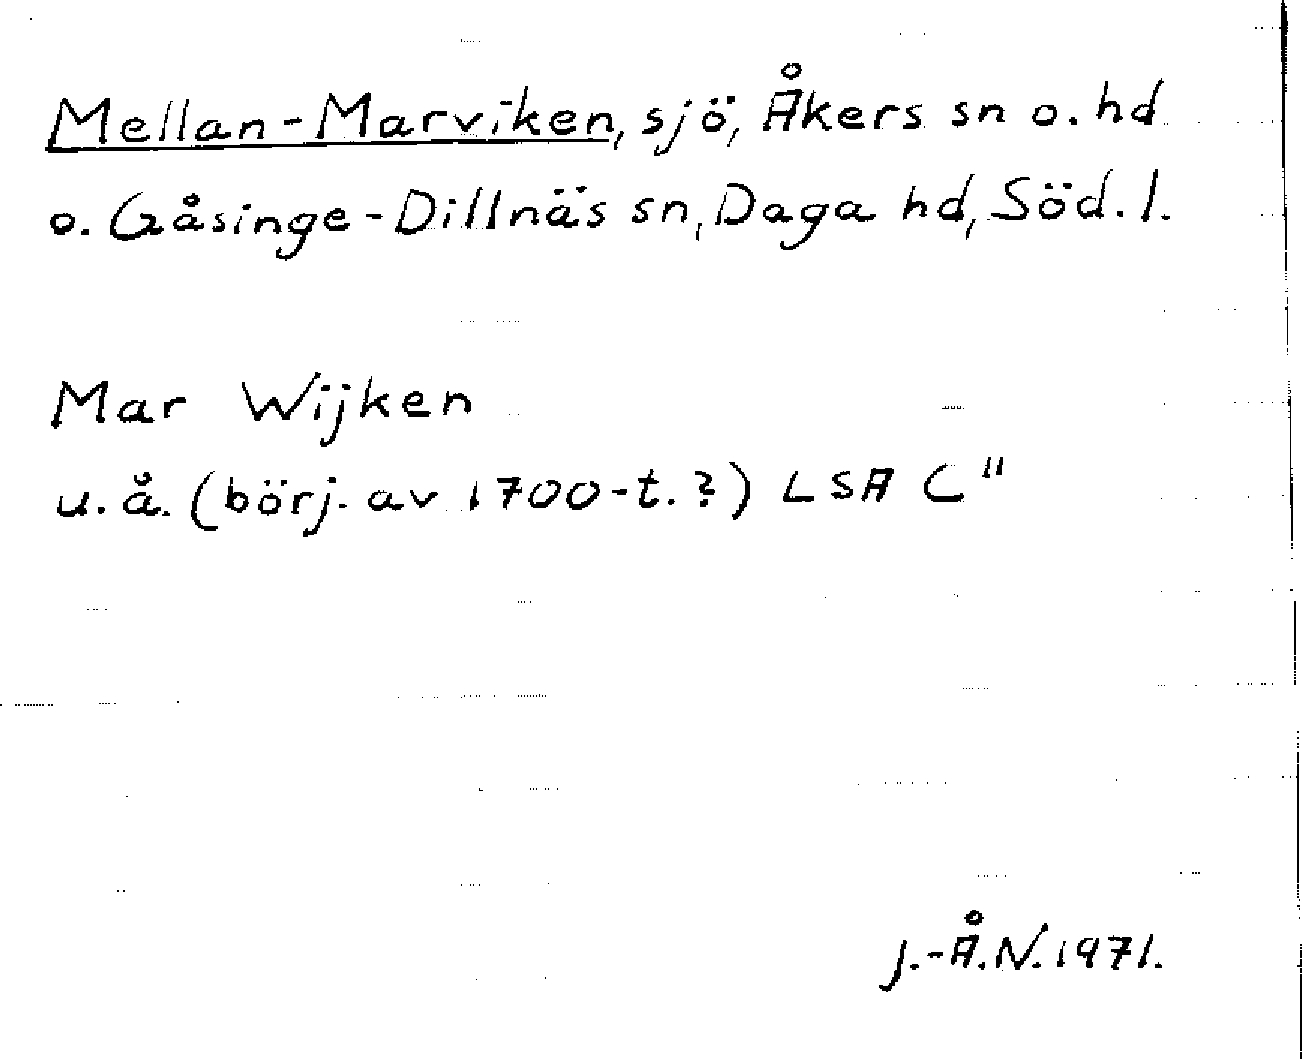 Mellan-Marviken, sjö, Åkers sn o. hd
o. Gåsinge-Dillnäs sn, Daga hd, Söd. l.
Mar Wijken
u. å. (börj. av 1700-t. ?) LSA C"
J.-Å.N. 1971.